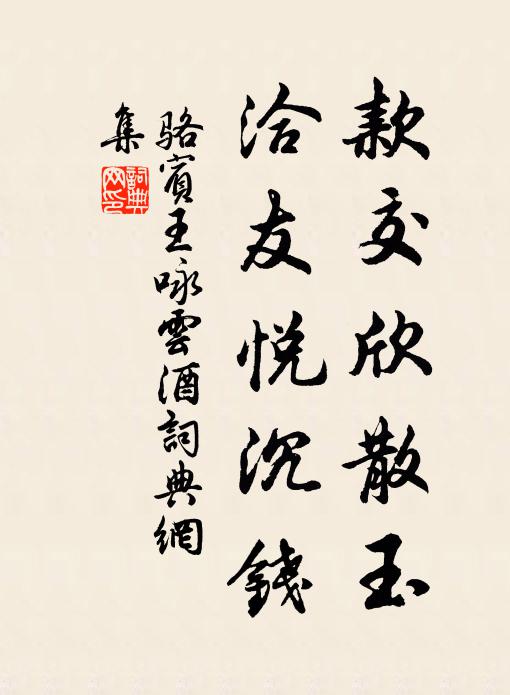 款交欣散玉
洽友悦沉錢
駱賓王咏雲酒詞典網
集
詞典网印